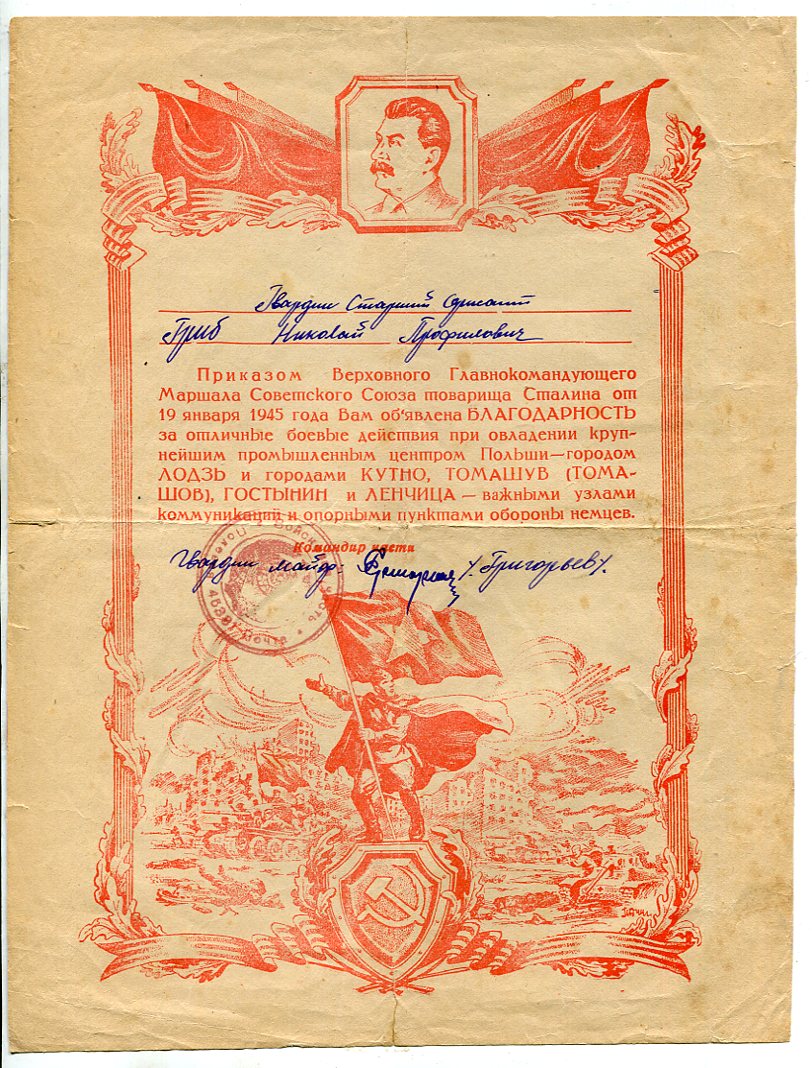 Гвардии Старший Сержант
Гриб Николай Профилович
Приказом Верховного Главнокомандующего
Маршала Советского Союза товарища Сталина от
19 января 1945 года Вам об'явлена БЛАГОДАРНОСТЬ
за отличные боевые действия при овладении круп-
нейшим промышленным центром Польши—городом
ЛОДЗЬ и городами КУТНО, ТОМАШУВ (ТОМА-
ШОВ), ГОСТЫНИН и ЛЕНЧИЦА — важными узлами
коммуникаций и опорными пунктами обороны немцев.
Командир части
Гвардии майор: /Григорьев/.
Полевая Почта